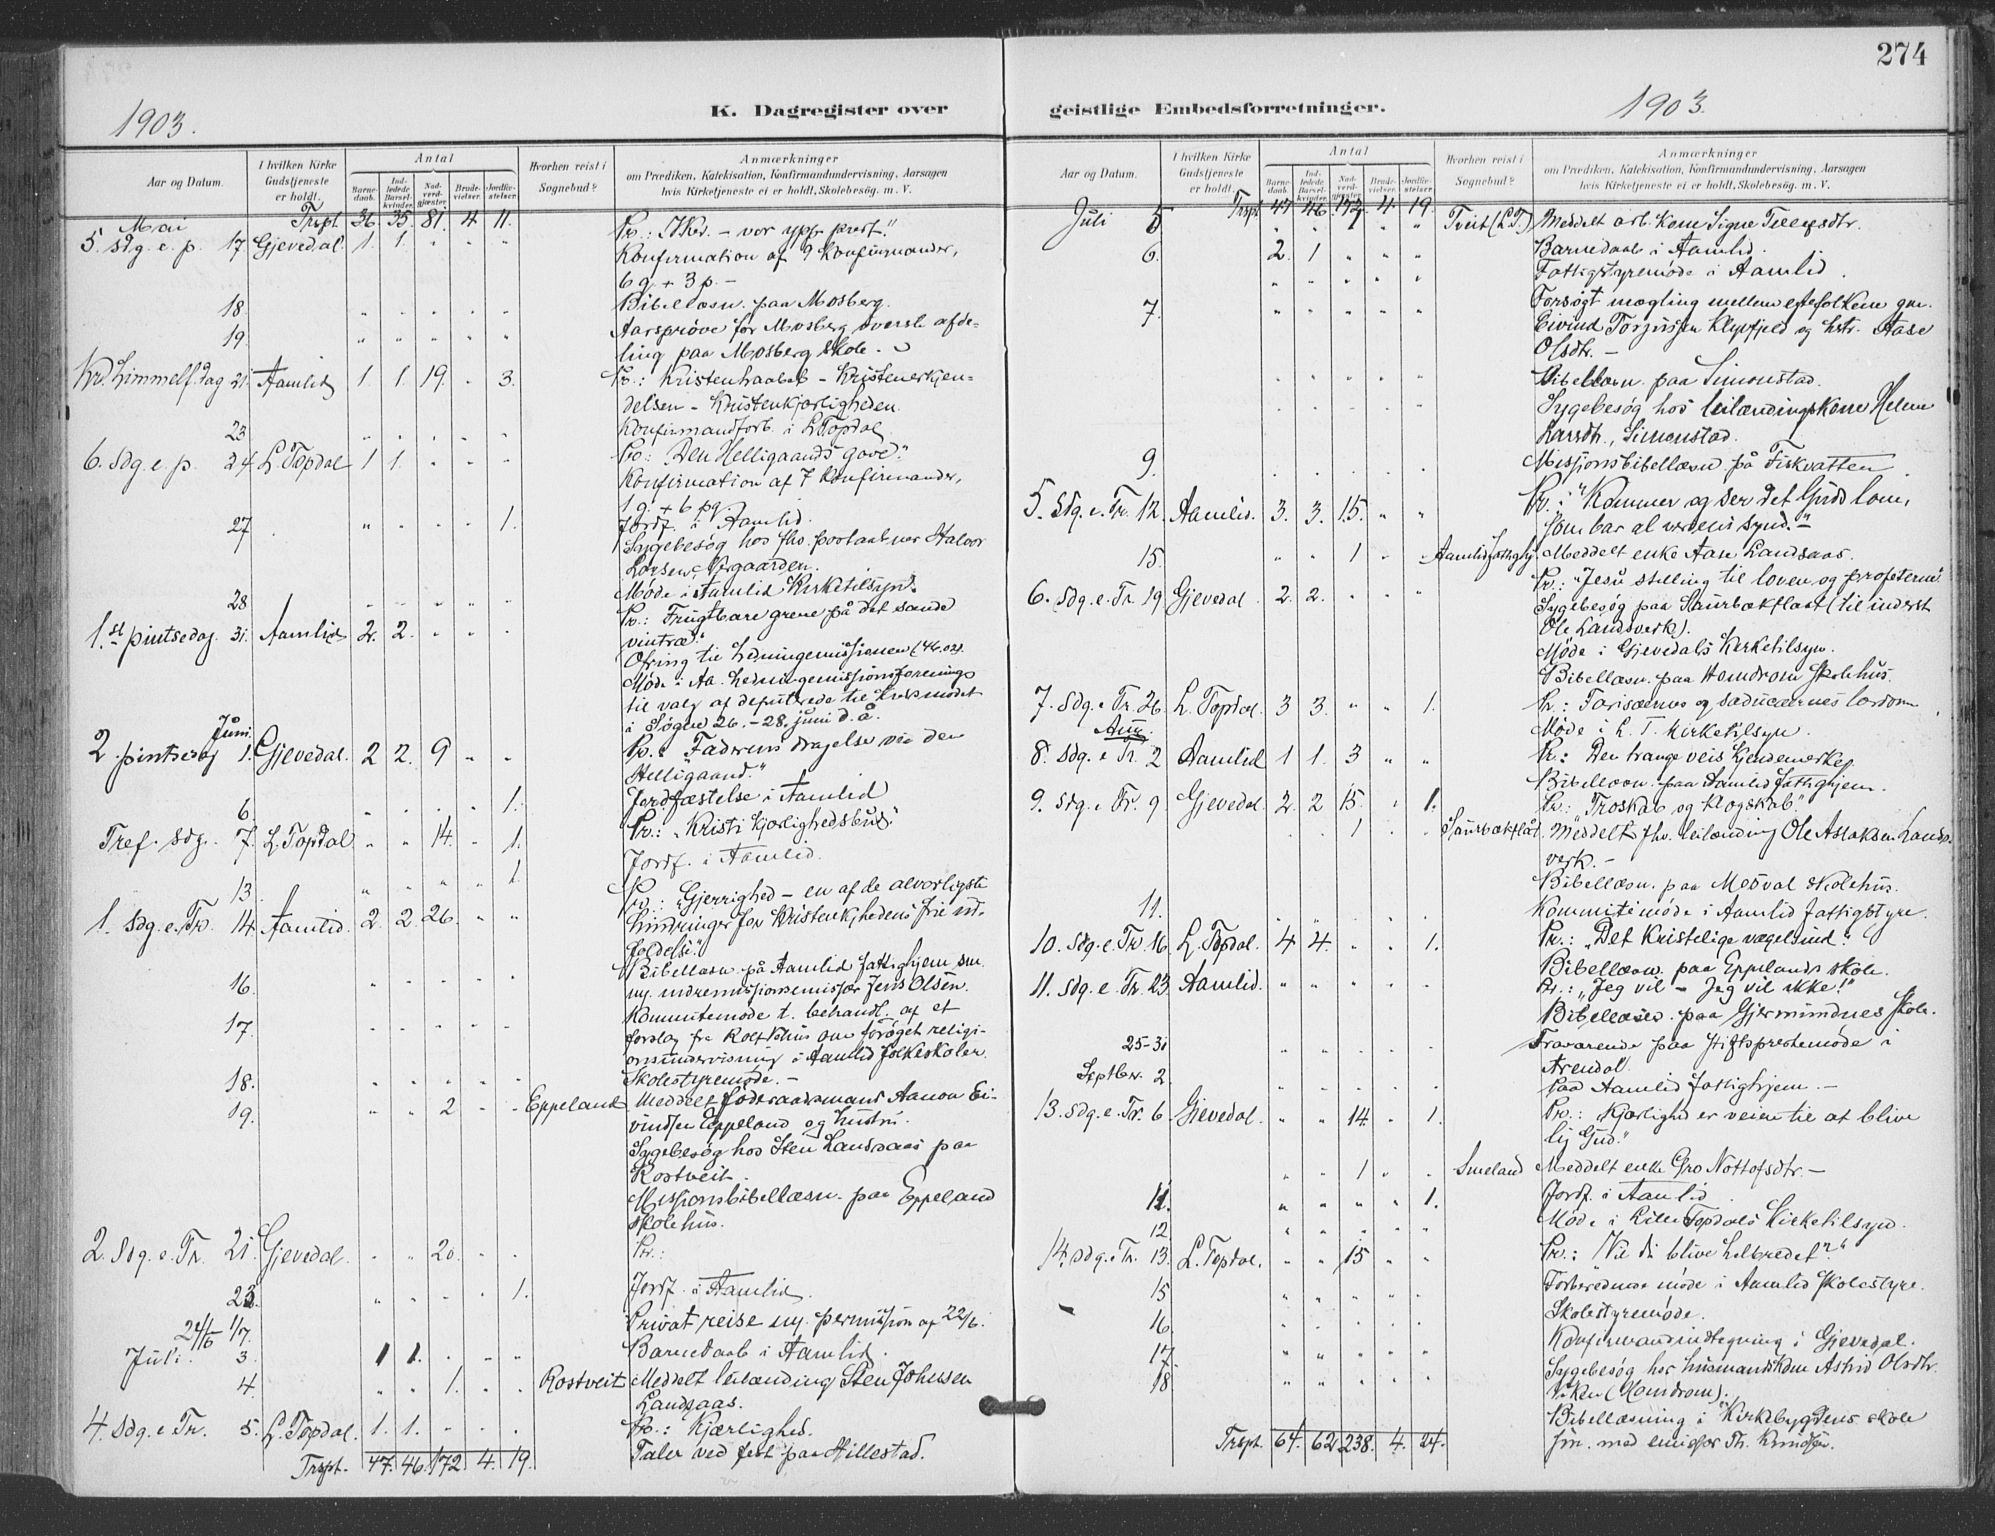 274
1903.
K. Dagregister over
geistlige Embedsforretninger.
1903.
Aar og Datum.
I hvilken Kirke Gudstjeneste er holdt.
Antal
Barnedaab.
Indledede Barselkvinder.
Nadverdgjæster.
Brudevielser.
Jordfæstelser.
Hvorhen reist i Sognebud?
Anmærkninger
om Prædiken, Katekisation, Konfirmandundervisning, Aarsagen
hvis Kirketjeneste ei er holdt, Skolebesøg. m. V.
Mai Trspt. 36. 35. 81. 4 11. Pr.: J. Kr. – vor ypp. prest."
5. Sdg. e. p. 17. Gjevedal. 1. 1. " " " Konfirmation af 9 Konfirmander,
6 g. + 3 p. –
18. " " " " " Bibellæsn. paa Mosberg.
19. " " " " " Aarsprøve for Mosberg øverste afde-
ling paa Mosberg skole.
Kr. Himmelf. dag 21. Aamlid 1. 1. 19. " 3. Pr.: Kristenhaabet – Kristenerkjen-
delsen – Kristenkjærligheden.
23 " " " " " Konfirmandforb. i L. Topdal
6. Sdg. e. p. 24. L. Topdal 1 1. " " " Pr.: "Den Helligaands gave."
Konfirmation af 7 Konfirmander,
1 g. + 6 pg.
27 " " " " 1. Jordf. i Aamlid.
Sygebesøg hos fhv. postaabner Halvor
Larsen,
28 " " " " " Møde i Aamlid Kirketilsyn.
1.st pintsedag. 31. Aamlid 2. 2. " " " Pr.: Frugtbare grene på det sande
vintræ."
Ofring til Hedningemissionen (46.02).
Møde i Aa. Hedningemissionsforenings
til valg af deputerede til kredsmødet
i Søgne 26.–28. juni d. å.
Juni.
2 pintsedag 1. Gjevedal. 2 2. 9 " " Pr.: "Faderens dragelse ved den
Helligaand."
6. " " " " 1. Jordfæstelse i Aamlid
Tref. Sdg. 7. L. Topdal " " 14. " 1. Pr.: "Kristi Kjærlighedsbud."
13. " " " " 1. Jordf. i Aamlid.
1. Sdg. e. Tr. 14. Aamlid. 2. 2. 26. " " Pr.: "Gjerrighed – en af de alvorligste
hindringer for Kristenkjhedens frie ud-
foldelse."
16. " " " " " Bibellæsn. på Aamlid fattighjem sm.
m. indremissionsemissær Jens Olsen.
17. " " " " " Kommitemøde t. behandl. af et
forslag fra Rolf Hhus om forøget religi-
onsundervisning i Aamlid folkeskoler.
18. " " " " " Skolestyremøde. –
19. " " 2 " " Eppeland Meddelt føderaadsmand Aanon Ei-
vindsen Eppeland og hustru.
Sygebesøg hos Sten Landsaas paa
Rostveit.
Missionsbibellæsn. paa Eppeland
skolehus.
2. Sdg. e. Tr. 21. Gjevedal. " " 20. " " Pr.:
23. " " " " 1. Jordf. i Aamlid.
24/6 1/7. Privat reise m. permission af 22/6.
Juli. 3. 1 1. " " " Barnedaab i Aamlid.
4. " " 1. " " Rostveit Meddelt leilænding Sten Johnsen
Landsaas.
4. Sdg. e Tr. 5. L. Topdal. 1. 1. " " " Pr.: Kjærlighed.
Taler ved fest paa Hillestad.
Trspt. 47. 46. 172 4. 19.
Aar og Datum.
I hvilken Kirke Gudstjeneste er holdt.
Antal
Barnedaab.
Indledede Barselkvinder.
Nadverdgjæster.
Brudevielser.
Jordfæstelser.
Hvorhen reist i Sognebud?
Anmærkninger
om Prædiken, Katekisation, Konfirmandundervisning, Aarsagen
hvis Kirketjeneste ei er holdt, Skolebesøg. m. V.
Trspt. 47. 46. 172. 4. 19.
Juli 5 Tveit (L.T.) Meddelt arb. kone Signe Tellefsdtr.
6. 2. 1 " " " Barnedaab i Aamlid.
Fattigstyremøde i Aamlid.
7. " " " " " Forsøgt mægling mellem egtefolkene gm.
Eivind Torjussen Klepfjeld og hstr. Aase
Olsdtr. –
Bibellæsn. paa Simonstad.
Sygebesøg hos leilændingskone Helene
Larsdtr., Simonstad.
9. Missionsbibellæsn. på Fiskvatten
5. Sdg. e. Tr. 12. Aamlid. 3. 3. 15. " " Pr.: "Kommer og ser det Guds lam,
som bar al verdens synd." –
15. " " 1 " " Aamlid fattighj. Meddelt enke Aase Landsaas.
6. Sdg. e. Tr. 19. Gjevedal 2. 2. " " " Pr.: "Jesu stilling til loven og profeterne."
Sygebesøg paa Saurbækflaat (til inderst
Ole Landsverk).
Møde i Gjevedals Kirketilsyn.
Bibellæsn. paa Homdrom Skolehus.
7. Sdg. e Tr. 26. L. Topdal. 3 3. " " 1. Pr.: Farisæernes og saducæernes lærdom
Møde i L. T. Kirketilsyn.
Aug.
8. Sdg. e Tr. 2 Aamlid 1 1. 3 " " Pr.: Den trange veis Kjendemerke
Bibellæsn. paa Aamlid fattighjem.
9. Sdg. e Tr. 9. Gjevedal. 2. 2 15. " 1. Pr.: "Troskab og klogskab"
1 Saurbækflåt. Meddelt fhv. leilænding Ole Aslaksen Lands-
verk. –
Bibellæsn. paa Medval skolehus.
11. Kommitemøde i Aamlid fattigstyre.
10. Sdg. e Tr. 16. L. Topdal. 4 4. " " 1. Pr.: "Det Kristelige vægelsind."
Bibellæsn. paa Eppelands skole.
11. Sdg. e. Tr. 23. Aamlid. " " " " " Pr.: "Jeg vil – Jeg vil ikke!"
Bibellæsn. paa Gjermundnes Skole.
25–31 " " " " " Fraværende paa stiftsprestemøde i
Arendal.
Septbr. 2. " " " " " Paa Aamlid fattighjem. –
13. Sdg. e. Tr. 6. Gjevedal. " " 14 " 1. Pr.: "Kjærlighed er veien til at blive
lig Gud."
" " 1 " " Smeland Meddelt enke Gro Nottofsdtr. –
11. " " " " 1. Jordf. i Aamlid
12 " " " " " Møde i Lille Topdals Kirketilsyn.
14. Sdg. e Tr. 13. L. Topdal. " " 15 " " Pr.: "Vil du blive helbredet?"
15 " " " " " Forberedende møde i Aamlid Skolestyre.
16. Skolestyremøde.
17. " " " " " Konfirmandindtegning i Gjevedal.
18 " " " " " Sygebesøg hos husmandskone Astrid Olsdtr.
(Homdrom).
Bibellæsning i Kirkebygdens skole
sm. med emissær Th. Knudsen.
Trspt. 64. 62 238. 4. 24.